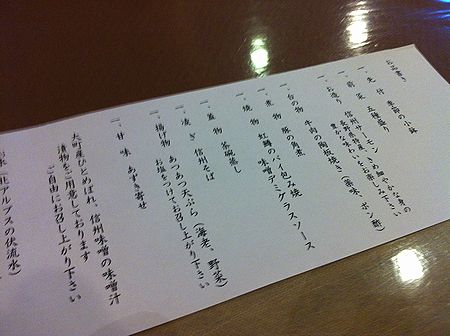 お品書き
一、先付 季節の小鉢
一、前菜 五種盛り
一、お造り 信州サーモン、きめ細やかな身の
長野県特産、
豊かな味わいをお楽しみ下さい
一、台の物 牛肉の陶板焼き(薬味、ポン酢)
一、煮物 豚の角煮
一、焼物 虹鱒のパイ包み焼
味噌デミグラスソース
一、蓋物 茶碗蒸し
一、凌ぎ 信州そば
一、揚げ物 あつあつ天ぷら(海老、野菜)
お塩をつけてお召し上がり下さい
一、甘味 あずき寄せ
大町産ひとめぼれ、信州味噌の味噌汁
漬物をご用意しております
ご自由にお召し上がり下さい
アルプスの伏流水)